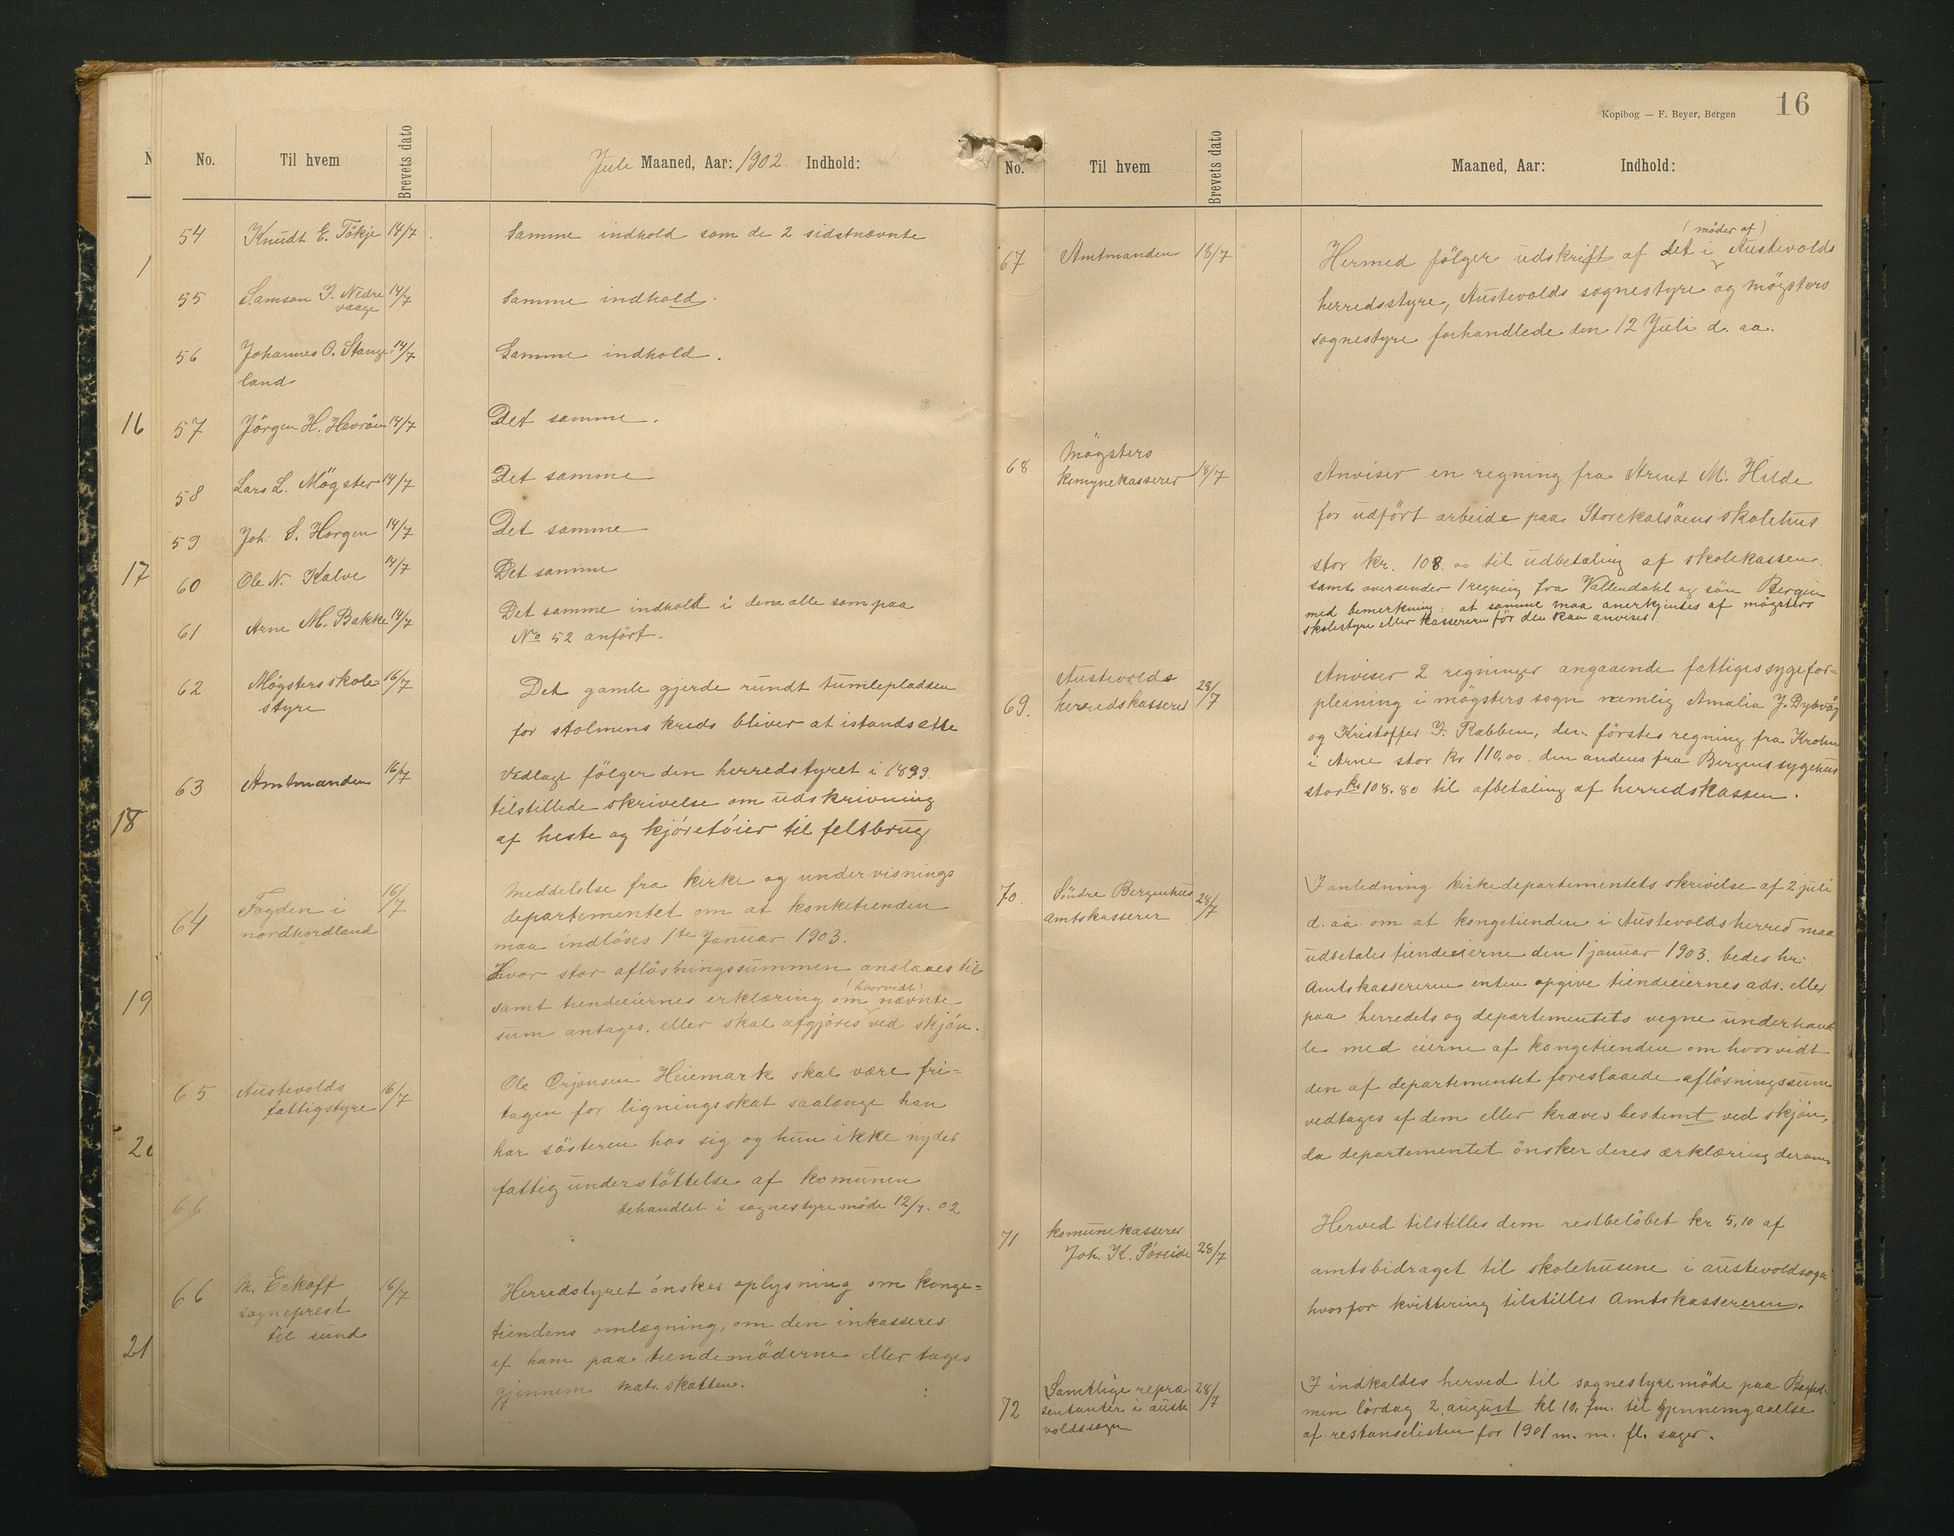 No. Til hvem Brevets dato Juli Maaned, Aar: 1902. Indhold:
54 Knudt E. Tökje 14/7 Samme indhold som de 2 sidstnævnte
55 Samson J. Nedre 14/7 Samme indhold.
vaage
56 Johannes O. Stange 14/7 Samme indhold.
land
57 Jörgen H. Havröen 14/7 Det samme.
58 Lars L. Mögster 14/7 Det samme
59 Joh. S. Horgen 14/7 Det samme
60 Ole N. Kalve 14/7 Det samme
61 Arne M. Bakke 14/7 Det samme indhold i dem alle som paa
No 52 anfört.
62 Møgsters skole= 16/7 Det gamle gjerde rundt tumlepladsen
styre for stolmens kreds bliver at istandsætte
63 Amtmanden 16/7 Vedlagt fölger den herredstyret i 1899
tilstillede skrivelse om udskrivning
af heste og kjöretöier til feltbrug
64 Fogden i 16/7 Meddelelse fra kirke og undervisnings
nordhordland departementet om at kongetienden
maa indlöses 1te Januar 1903.
Hvor stor aflösningssummen anslaaes til
samt tiendeeiernes erklæring om (hvorvidt) nævnte
sum antages, eller skal afgjöres ved skjön.
65 Austevolds 16/7 Ole Örjansen Heiemark skal være fri-
fattigstyre tagen for ligningsskat saalænge han
har sösteren hos sig og hun ikke nyder
fattigunderstöttelse af komunen
behandlet i sognestyremöde 12/7. 02
66
66 M. Eckoff 16/7 Herredstyret önsker oplysning om konge=
sogneprest tiendens omlægning, om den inkasseres
til sund af ham paa tiendemöderne eller tages
gjennem matr. skatten.
16
17
18
19
21
16
Kopibog — F. Beyer, Bergen
No. Til hvem Brevets dato Maaned, Aar: Indhold:
67 Amtmanden 18/7 Hermed fölger udskrift af det i (möder af) Austevolds
herredsstyre, Austevolds sognestyre og mögsters
sognestyre forhandlede den 12 Juli d. aa.
68 Mögsters
komynekasserer 18/7 Anviser en regning fra Arent M. Hilde
for udfört arbeide paa Storekalsöens skolehus
stor kr. 108.00 til udbetaling af skolekassen.
samt oversender 1 regning fra Vallendahl og sön Bergen
med bemerkning: at samme maa anerkjendes af mögsters
skolestyre eller kassereren för den kan anvises.
69. Austevolds 28/7 Anviser 2 regninger angaaende fattiges sygefor-
herredskasserer pleining i mögsters sogn nemlig Amalia J. Dybvåg
og Kristoffer J. Rabben, den förstes regning fra Krohn
i Arne stor kr 110,00. den andens fra Bergens sygehus
stor kr 108.80 til afbetaling af herredskassen.
70. Söndre Bergenhus 28/7 I anledning kirkedepartementets skrivelse af 2 juli
amtskasserer d. aa. om at kongetienden i Austevolds herred maa
udbetales tiendeeierne den 1 januar 1903. bedes hr.
Amtskassereren enten opgive tiendeeiernes adr. eller
paa herredets og departementets vegne underhand
le med eierne af kongetienden om hvorvidt
den af departementet foreslaaede aflösningssum
vedtages af dem eller kræves bestemt ved skjön,
da departementet önsker deres erklæring derom
71 komunekasserer Herved tilstilles dem restbelöbet kr 5,10 af
Joh. K. Söreide 28/7 amtsbidraget til skolehusene i austevoldsogn
hvorfor kvittering tilstilles Amtskassereren.
72 Samtlige repræ 28/7 I indkaldes herved til sognestyremöde paa
sentanter i auste men lördag 2 august kl 10. fm. til gjennemgaaelse
voldssogn af restanselisten for 1901 m. m. fl. sager.